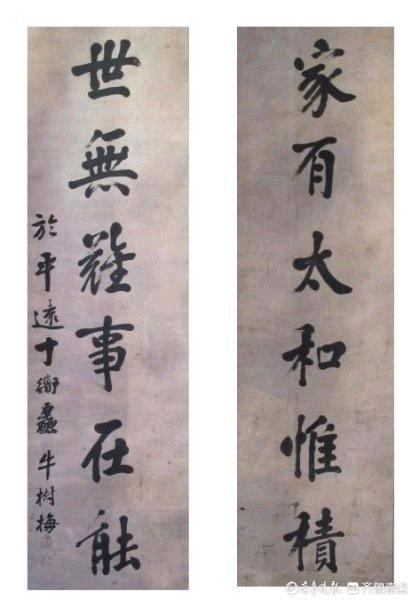 家有太和惟積
世無難事在能
於平遠寸衙齋牛樹梅
齐鲁晚报 齐鲁壹点